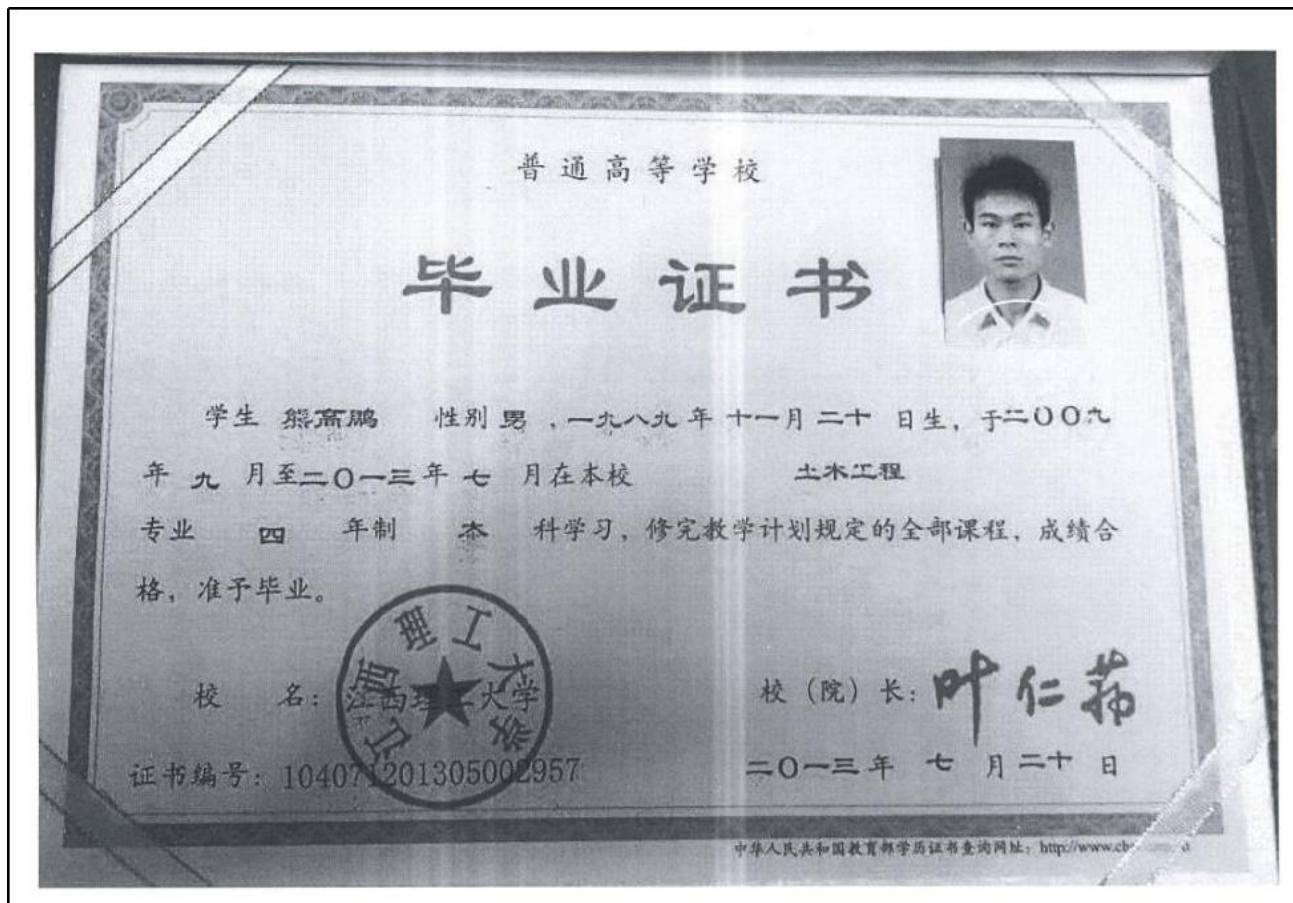 普通高等学校
毕业证书
学生 熊高鹏 性别 男 ,一九八九年 十一月 二十 日生，于二〇〇九
年 九 月至二〇一三年 七 月在本校 土木工程
专业 四 年制 本 科学习，修完教学计划规定的全部课程，成绩合
格，准予毕业。
江西理工大学
校 名：江西理工大学 校（院）长：叶仁荪
证书编号：104071201305002957 二〇一三年 七 月 二十 日
中华人民共和国教育部学历证书查询网址：http://www.ch